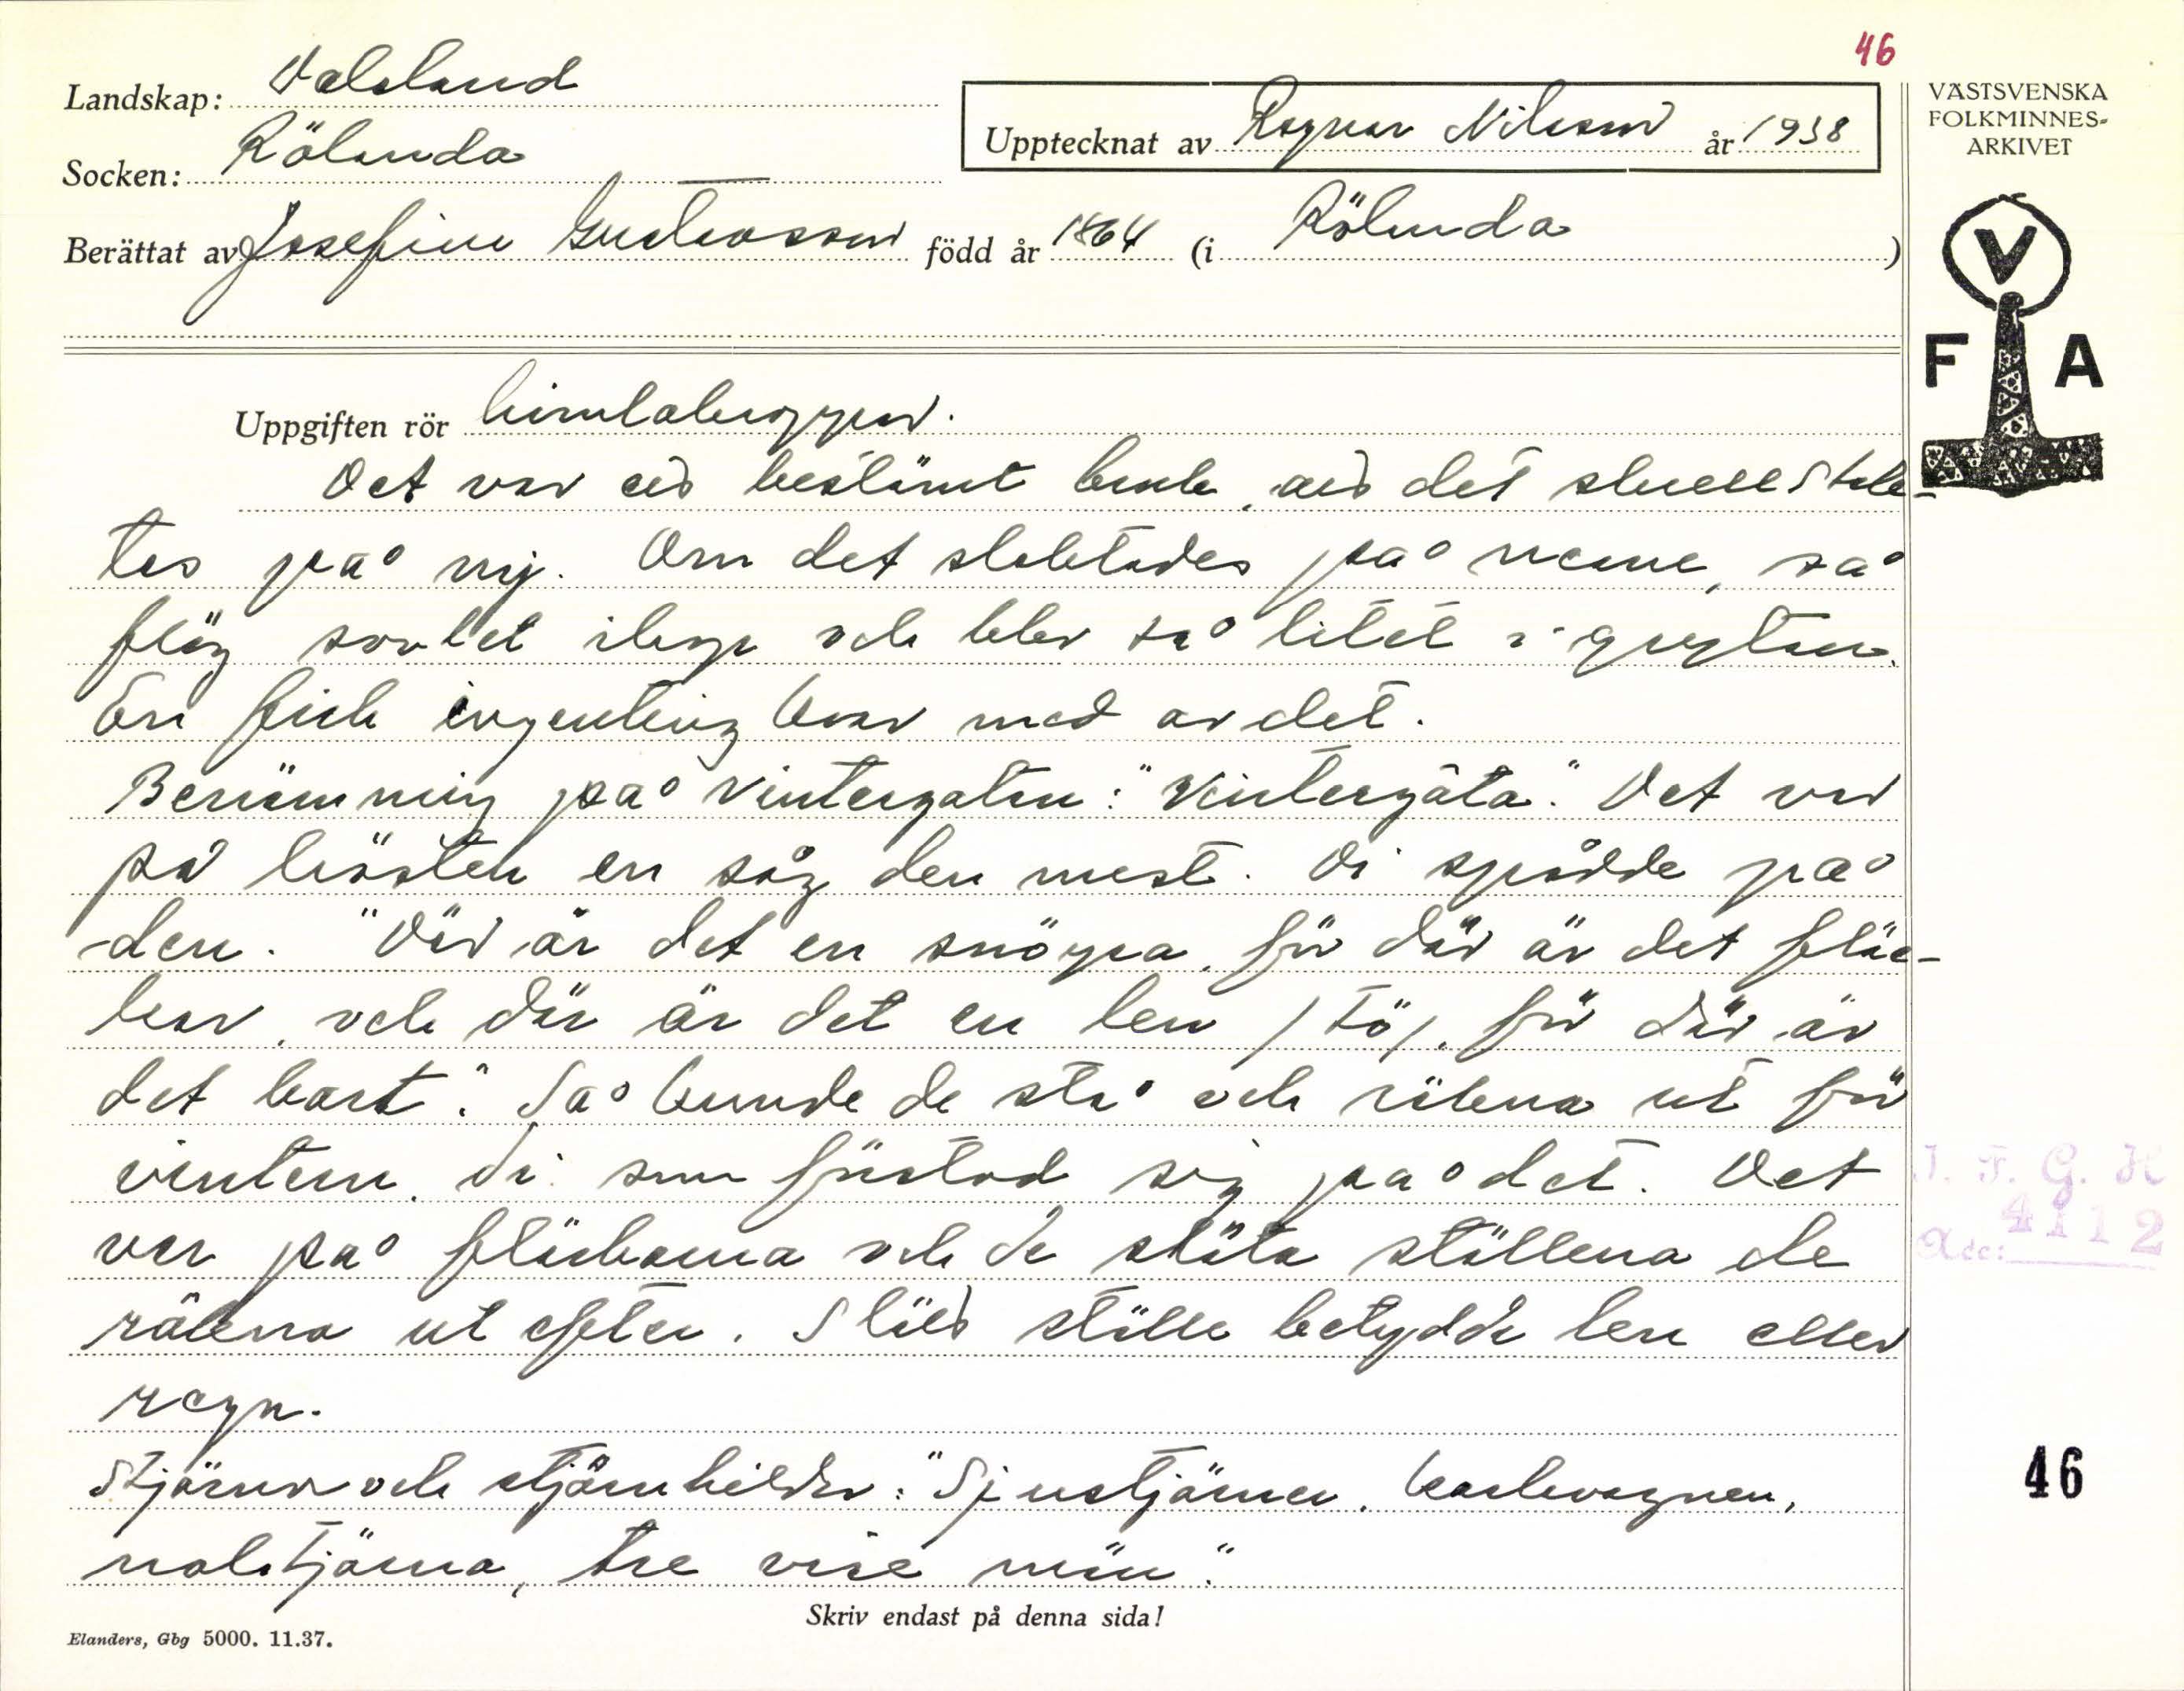 46
Landskap: Dalsland
Socken: Rölanda
Upptecknat av Ragnar Nilsson år 1938
VÄSTSVENSKA
FOLKMINNES-
ARKIVET
Berättat av Josefine Gustavsson född år 1864 (i Rölanda)
V
F A
Uppgiften rör himlakroppar.
Det var ett bestämt bruk, att det skulle slak-
tas på ny. Om det slaktades på neane, så
flög sovlet ihop och blev så litet i grytan.
En fick ingenting kvar med av det.
Benämning på vintergatan: "Vintergata". Det var
på hösten en såg den mest. Di spådde på
den. "Där är det en snöpa, för där är det fläc-
kar, och där är det en len /tö/, för där är
det bart". Så kunde de stå och räkna ut för
vintern. Di som förstod sig på det. Det
var på fläckarna och de släta ställena de
räkna ut efter. Slätt ställe betydde len eller
regn.
Stjärnor och stjärnbilder: "Sjustjärna, karlavagnen,
nolstjärna, tre vise män".
I. F. G. H
Acc: 4112
46
Skriv endast på denna sida!
Elanders, Gbg 5000. 11.37.